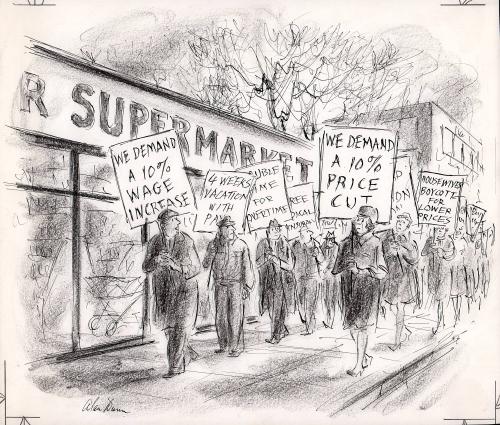 R SUPERMARKET
WE DEMAND
A 10%
WAGE
INCREASE
4 WEEKS
VACATION
WITH
PAY
OUBLE
TIME
FOR
OVERTIME
REE
WE DEMAND
A 10%
PRICE
CUT
HOUSEWIVES
BOYCOTT
FOR
LOWER
PRICES
Alan Dunn